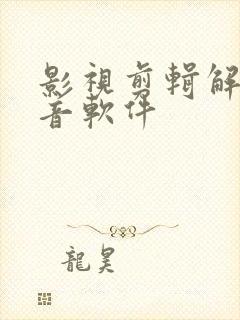 影視剪輯解
音軟件
龍昊